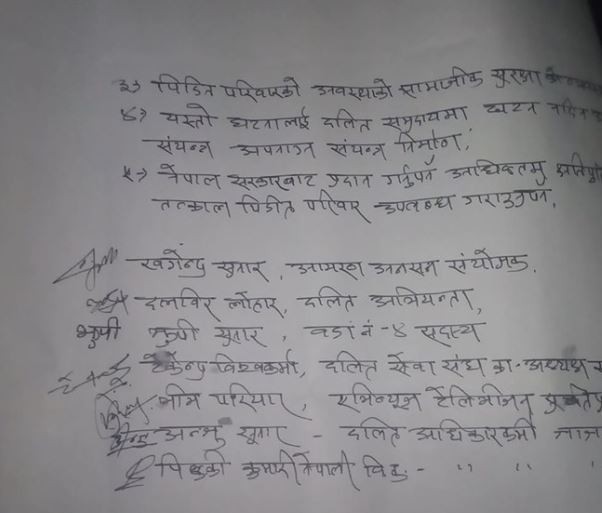 ३) पिडित परिवारको अवस्थाको सामाजीक सुरक्षा
४) यस्तो घटनालाई दलित समुदायमा घटन नदिन
संयन्त्र अपनाउन संयन्त्र निर्माण,
५) नेपाल सरकारबाट प्रदान गर्नुपर्ने अधिकतम्
तत्काल पिडीत परिवार उपलब्ध गराउनुपर्ने,
खगेन्द्र सुनार, आमरण अनसन संयोजक,
दलविर लोहार, दलित अभियन्ता,
सुनार, वडा नं - ४ सदस्य
टेकेन्द्र विश्वकर्मा, दलित सेवा संघ का. अध्यक्ष
भीम परियार, एभिन्यूज टेलिभीजन
सुनार - दलित अधिकारकर्मी
कुमारी नेपाली वि.क. - " " "